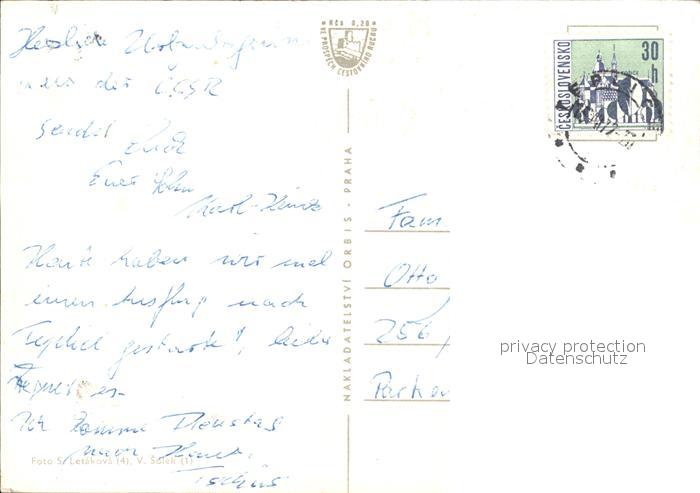 Herzliche Urlaubsgrüße
aus der ČSSR
sendet Euch
Euer Sohn
Karl-Heinz
Heute haben wir mal
einen Ausflug nach
Teplice gestartet, leider
regnet es.
Wir kommen Dienstag
nach Hause.
Tschüs
Foto S. Letáková (4), V. Šolek (1)
KČs 0,20
VE PROSPĚCH CESTOVNÍHO RUCHU
NAKLADATELSTVÍ ORBIS - PRAHA
ČESKOSLOVENSKO
30 h
Fam
Otto
256
privacy protection
Datenschutz